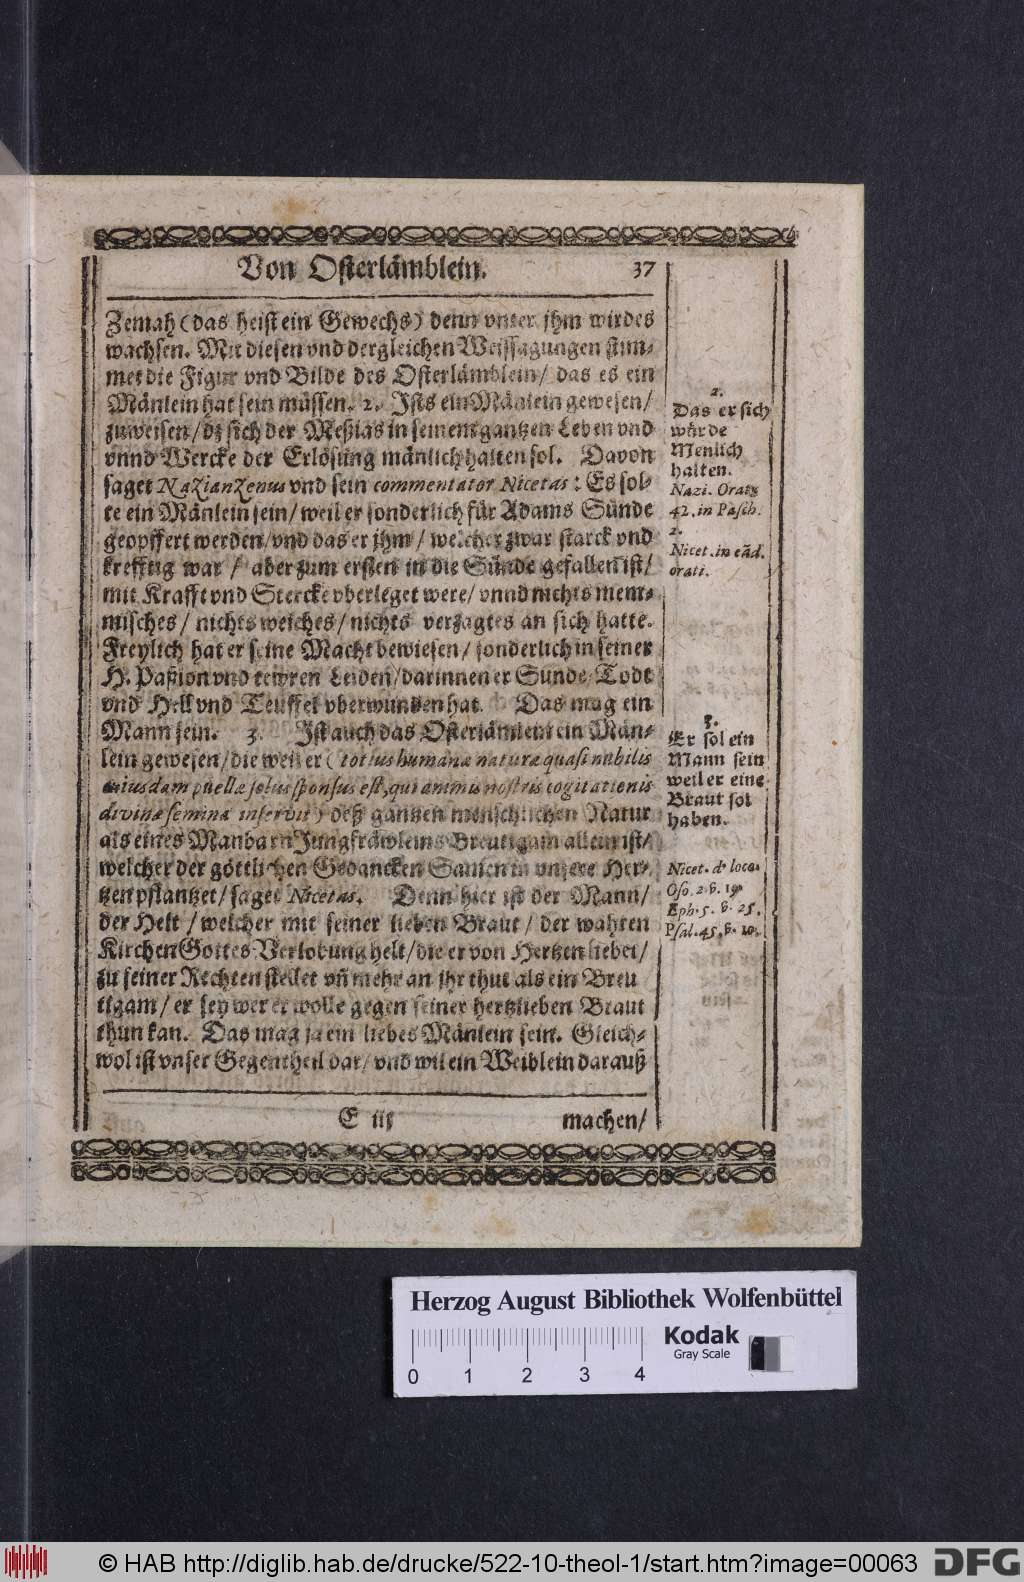 Von Osterlämblein. 37
Zemah (das heist ein Gewechs) denn vnter jhm wird es
wachsen. Mit diesen vnd dergleichen Weissagungen stim-
met die Figur vnd Bilde des Osterlämblein/ das es ein
Mänlein hat sein müssen. 2. Ists ein Mänlein gewesen/
zuweisen/ dz sich der Meßias in seinem gantzen Leben vnd
vnnd Wercke der Erlösung mänlich halten sol. Davon
saget Nazianzenus vnd sein commentator Nicetas: Es sol-
te ein Mänlein sein/ weil er sonderlich für Adams Sünde
geopffert werden/ vnd das er jhm/ welcher zwar starck vnd
krefftig war/ aber zum ersten in die Sünde gefallen ist/
mit Krafft vnd Stercke vberleget were/ vnnd nichts mem-
misches/ nichts weiches/ nichts verzagtes an sich hatte.
Freylich hat er seine Macht bewiesen/ sonderlich in seiner
H. Paßion vnd tewren Leiden/ darinnen er Sünde/ Todt
vnd Hell vnd Teuffel vberwunden hat. Das mag ein
Mann sein. 3. Ist auch das Osterlämlein ein Män-
lein gewesen/ die weil er (totius humanæ naturæ quasi nubilis
cuiusdam puellæ solus sponsus est, qui animis nostris cogitationis
divinæ semina inservit) deß gantzen menschlichen Natur
als eines Manbarn Jungfräwleins Breutigam allein ist/
welcher der göttlichen Gedancken Samen in vnsere Her-
tzen pflantzet/ saget Nicetas. Denn hier ist der Mann/
der Helt/ welcher mit seiner lieben Braut/ der wahren
Kirchen Gottes Verlobung helt/ die er von Hertzen liebet/
zu seiner Rechten stellet vñ mehr an jhr thut als ein Breu
tigam/ er sey wer er wolle gegen seiner hertzlieben Braut
thun kan. Das mag ja ein liebes Mänlein sein. Gleich-
wol ist vnser Gegentheil dar/ vnd wil ein Weiblein darauß
E iij machen/
2.
Das er sich
würde
Menlich
halten.
Nazi. Orat.
42. in Pasch.
2.
Nicet. in eãd.
orati.
3.
Er sol ein
Mann sein
weil er eine
Braut sol
haben.
Nicet. d. loco.
Osö. 2. v. 19.
Eph. 5. v. 25.
Psal. 45. v. 10.
Herzog August Bibliothek Wolfenbüttel
Kodak
Gray Scale
0 1 2 3 4
© HAB http://diglib.hab.de/drucke/522-10-theol-1/start.htm?image=00063
DFG